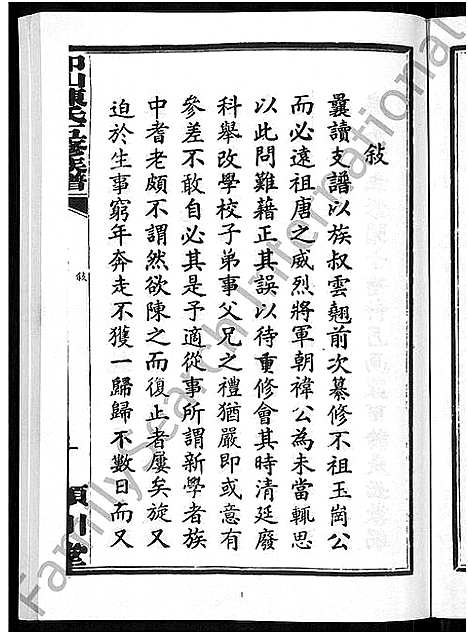 敍
曩讀支譜以族叔雲翹前次纂修不祖玉崗公
而必遠祖唐之威烈將軍朝禕公為未當輒思
以此問難藉正其誤以待重修會其時清廷廢
科舉改學校子弟事父兄之禮猶嚴即或意有
參差不敢自必其是予適從事所謂新學者族
中耆老頗不謂然欲陳之而復止者屢矣旋又
迫於生事窮年奔走不獲一歸歸不數日而又
印山陳氏五修族譜
敍
一
潁川堂
1
FamilySearch International